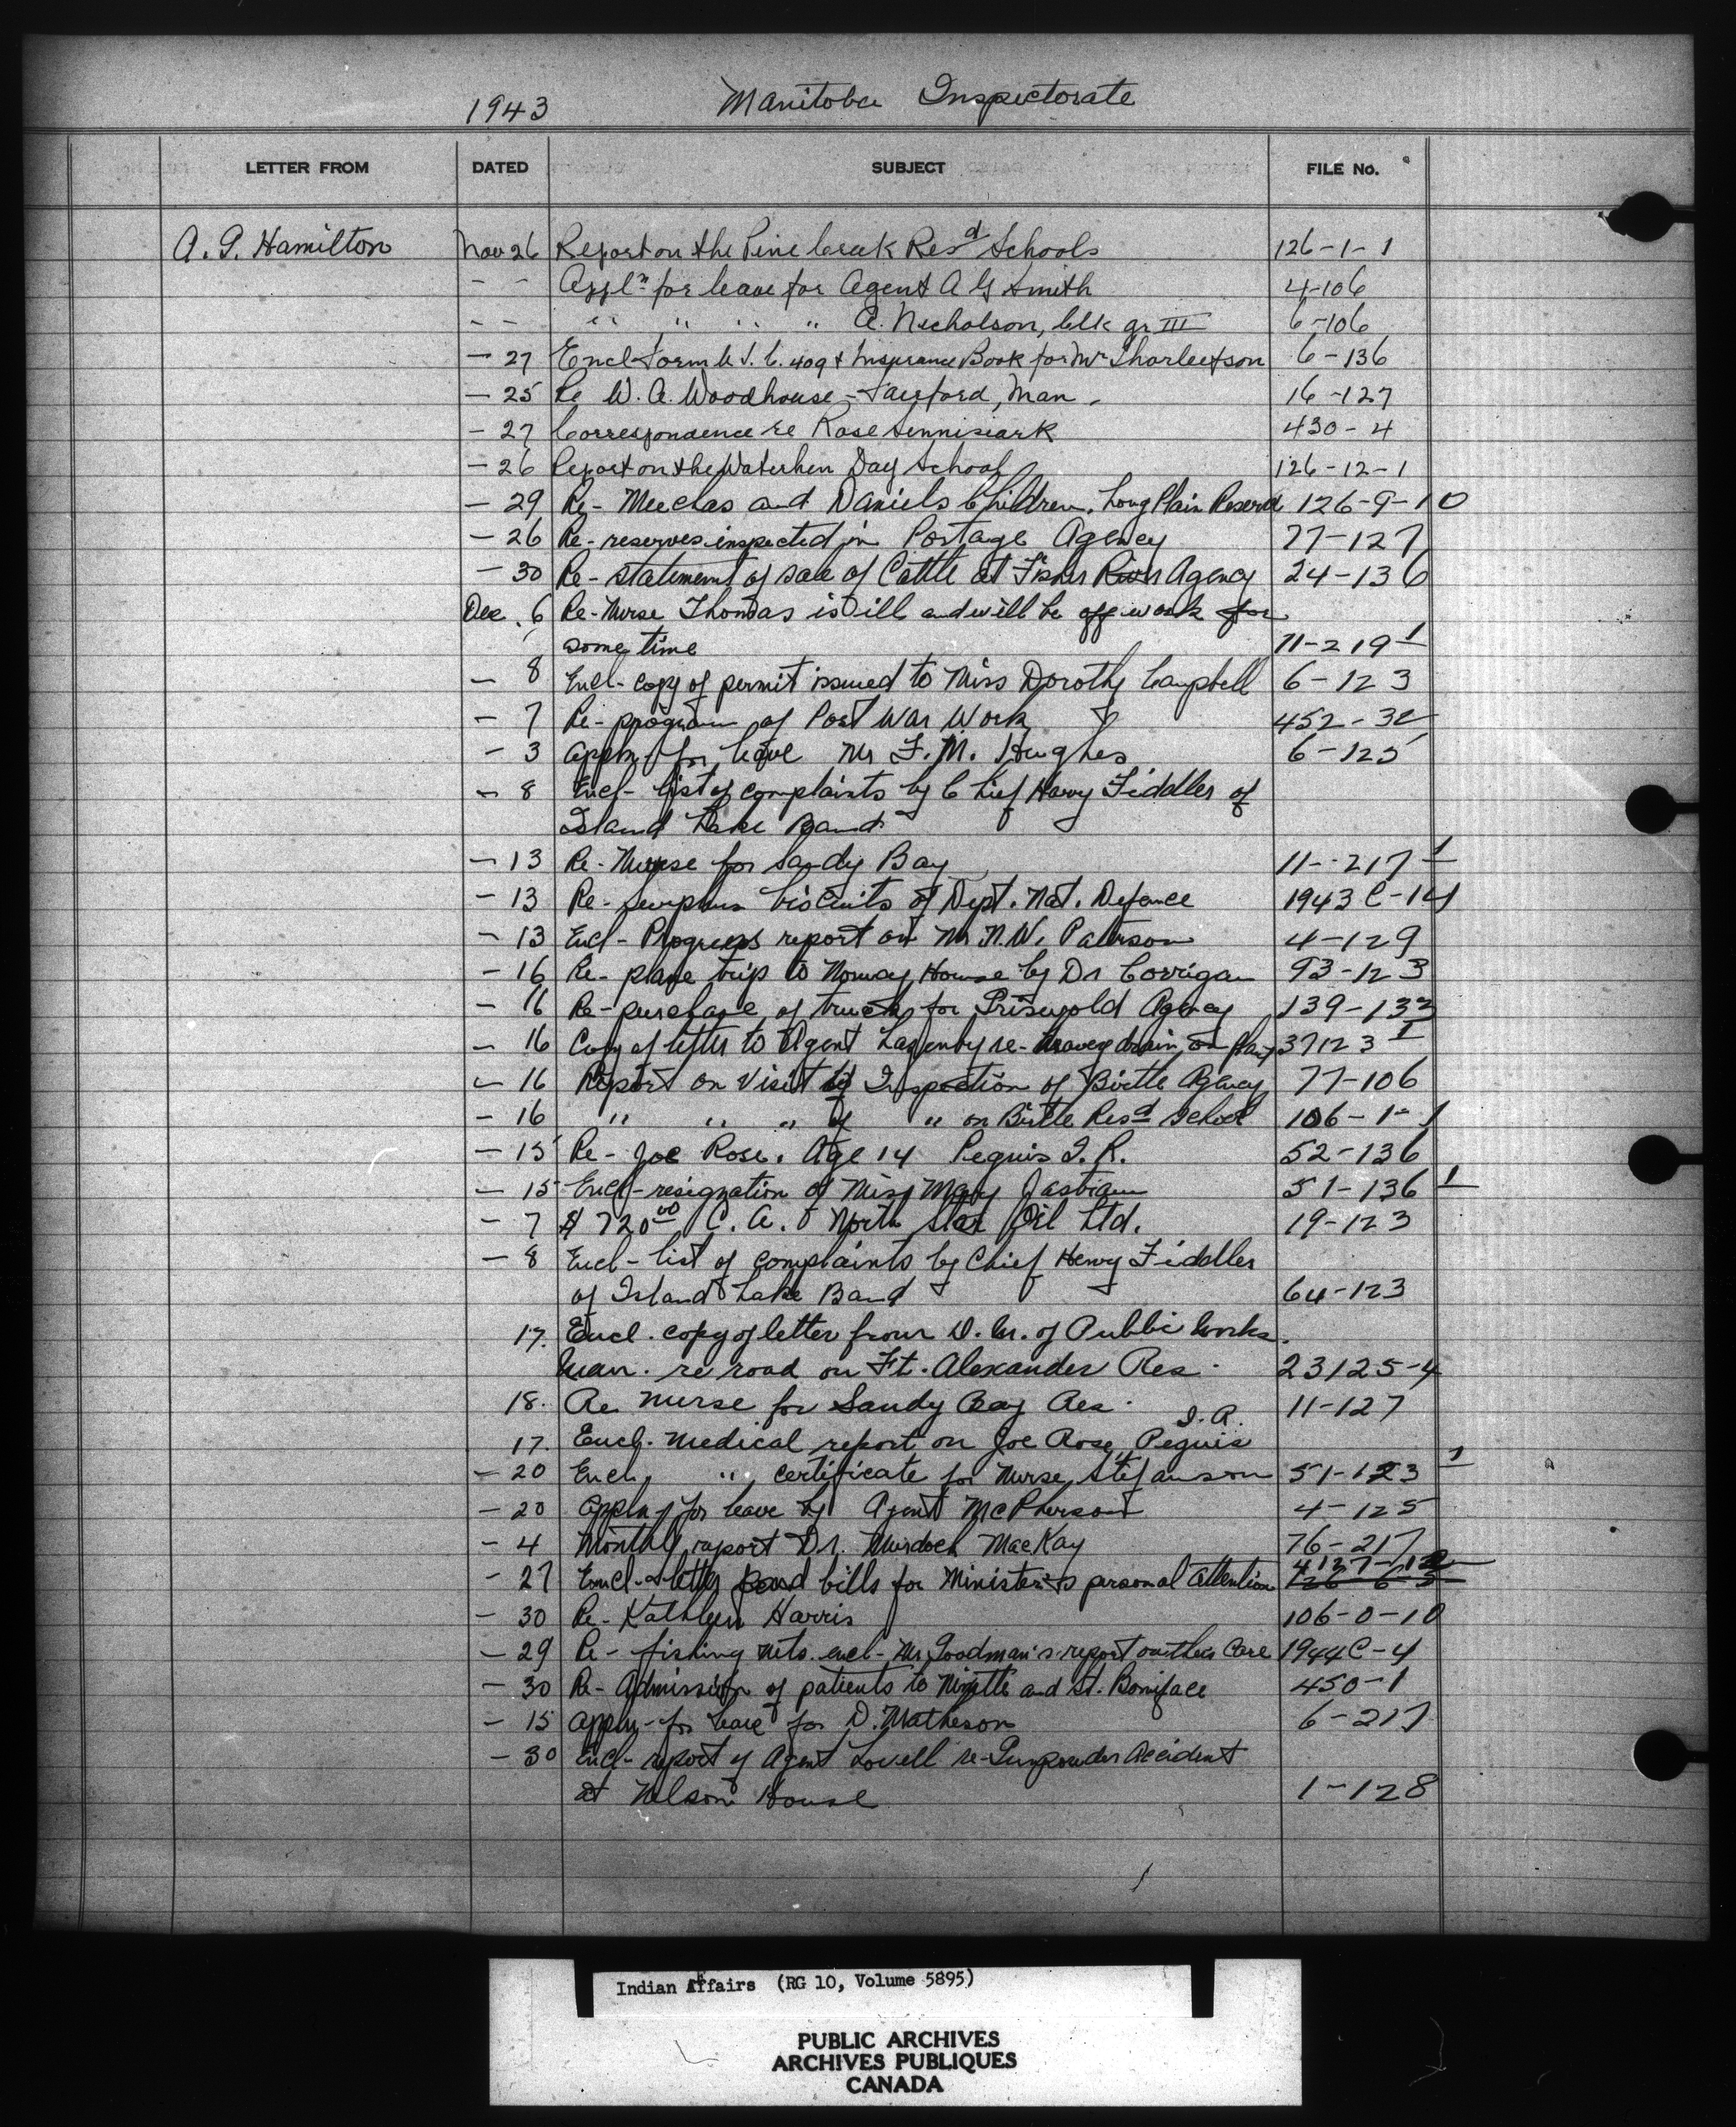 1943 Manitoba Inspectorate
LETTER FROM DATED SUBJECT FILE No.
A. G. Hamilton Nov 26 Report on the Pine Creek Resd Schools 126-1-1
- - Appln for leave for Agent A G Smith 4-106
- - " " " " A. Nicholson, Clk gr III 6-106
- 27 Encl Form C.S.C. 409 & Insurance Book for Mr 6-136
- 25 Re W. A. Woodhouse - Fairford, Man. 16-127
- 27 Correspondence re Rose 430-4
- 26 Report on the Waterhen Day School 126-12-1
- 29 Re- Meeches and Daniels Children, Long Plain Reserve 126-9-10
- 26 Re- reserves inspected in Portage Agency 77-127
- 30 Re- statement of sale of Cattle at Fisher River Agency 24-136
Dec. 6 Re- Nurse Thomas is ill and will be off work for
some time 11-219-1
- 8 Encl- copy of permit issued to Miss Dorothy Campbell 6-123
- 7 Re- program of Post War Work 452-32
- 3 Appln- for leave Mr F. M. Hughes 6-125
- 8 Encl- list of complaints by Chief Harry Fiddler of
Island Lake Band
- 13 Re- Nurse for Sandy Bay 11-217-1
- 13 Re- surplus biscuits of Dept. Nat. Defence 1943 C-14
- 13 Encl- Progress report on Mr N.W. Paterson 4-129
- 16 Re- plane trip to Norway House by Dr Corrigan 93-123
- 16 Re- purchase of truck for Griswold Agency 139-133
- 16 Copy of letter to Agent Lazenby re- drain on 37123-1
- 16 Report on Visit of Inspection of Birtle Agency 77-106
- 16 " " " of " on Birtle Resd School 106-1-1
- 15 Re- Joe Rose. Age 14 Peguis I.R. 52-136
- 15 Encl- resignation of Miss Mary 51-136-1
- 7 $720.00 C. A. North Star Oil Ltd. 19-123
- 8 Encl- list of complaints by Chief Henry Fiddler
of Island Lake Band 64-123
17. Encl. copy of letter from D. M. of Public Works.
Man. re road on Ft. Alexander Res. 23125-4
18. Re Nurse for Sandy Bay Res. 11-127
17. Encl. medical report on Joe Rose, Peguis I.R.
- 20 Encl. " certificate for Nurse Stefanson 51-123-1
- 20 Appln- for leave by Agent McPherson 4-125
- 4 Monthly report Dr. Murdoch MacKay 76-217
- 27 Encl- letter and bills for Minister's personal attention
- 30 Re- Kathleen Harris 106-0-10
- 29 Re- fishing nets. encl- Mr Goodman's report on their care 1944C-4
- 30 Re- Admission of patients to Ninette and St. Boniface 450-1
- 15 Appln- for leave for D. Matheson 6-217
- 30 Encl- report of Agent Lovell re- Gunpowder Accident
at Nelson House 1-128
Indian Affairs (RG 10, Volume 5895)
PUBLIC ARCHIVES
ARCHIVES PUBLIQUES
CANADA